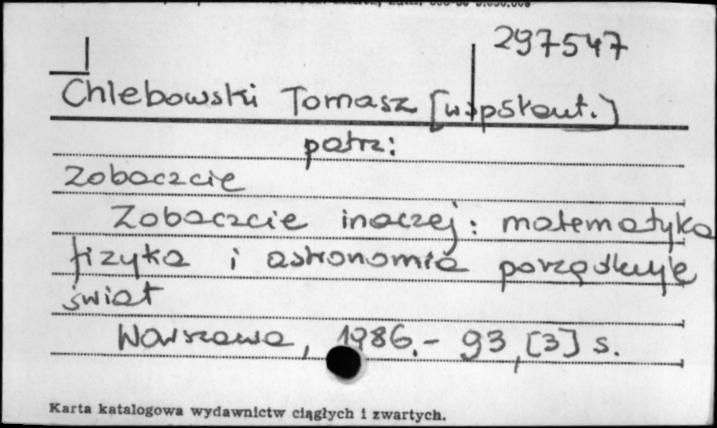 297547
Chlebowski Tomasz [współaut.]
patrz:
Zobaczcie
Zobaczcie inaczej: matematyka
fizyka i astronomia porządkuje
świat
Warszawa, 1986.- 93,[3] s.
Karta katalogowa wydawnictw ciągłych i zwartych.